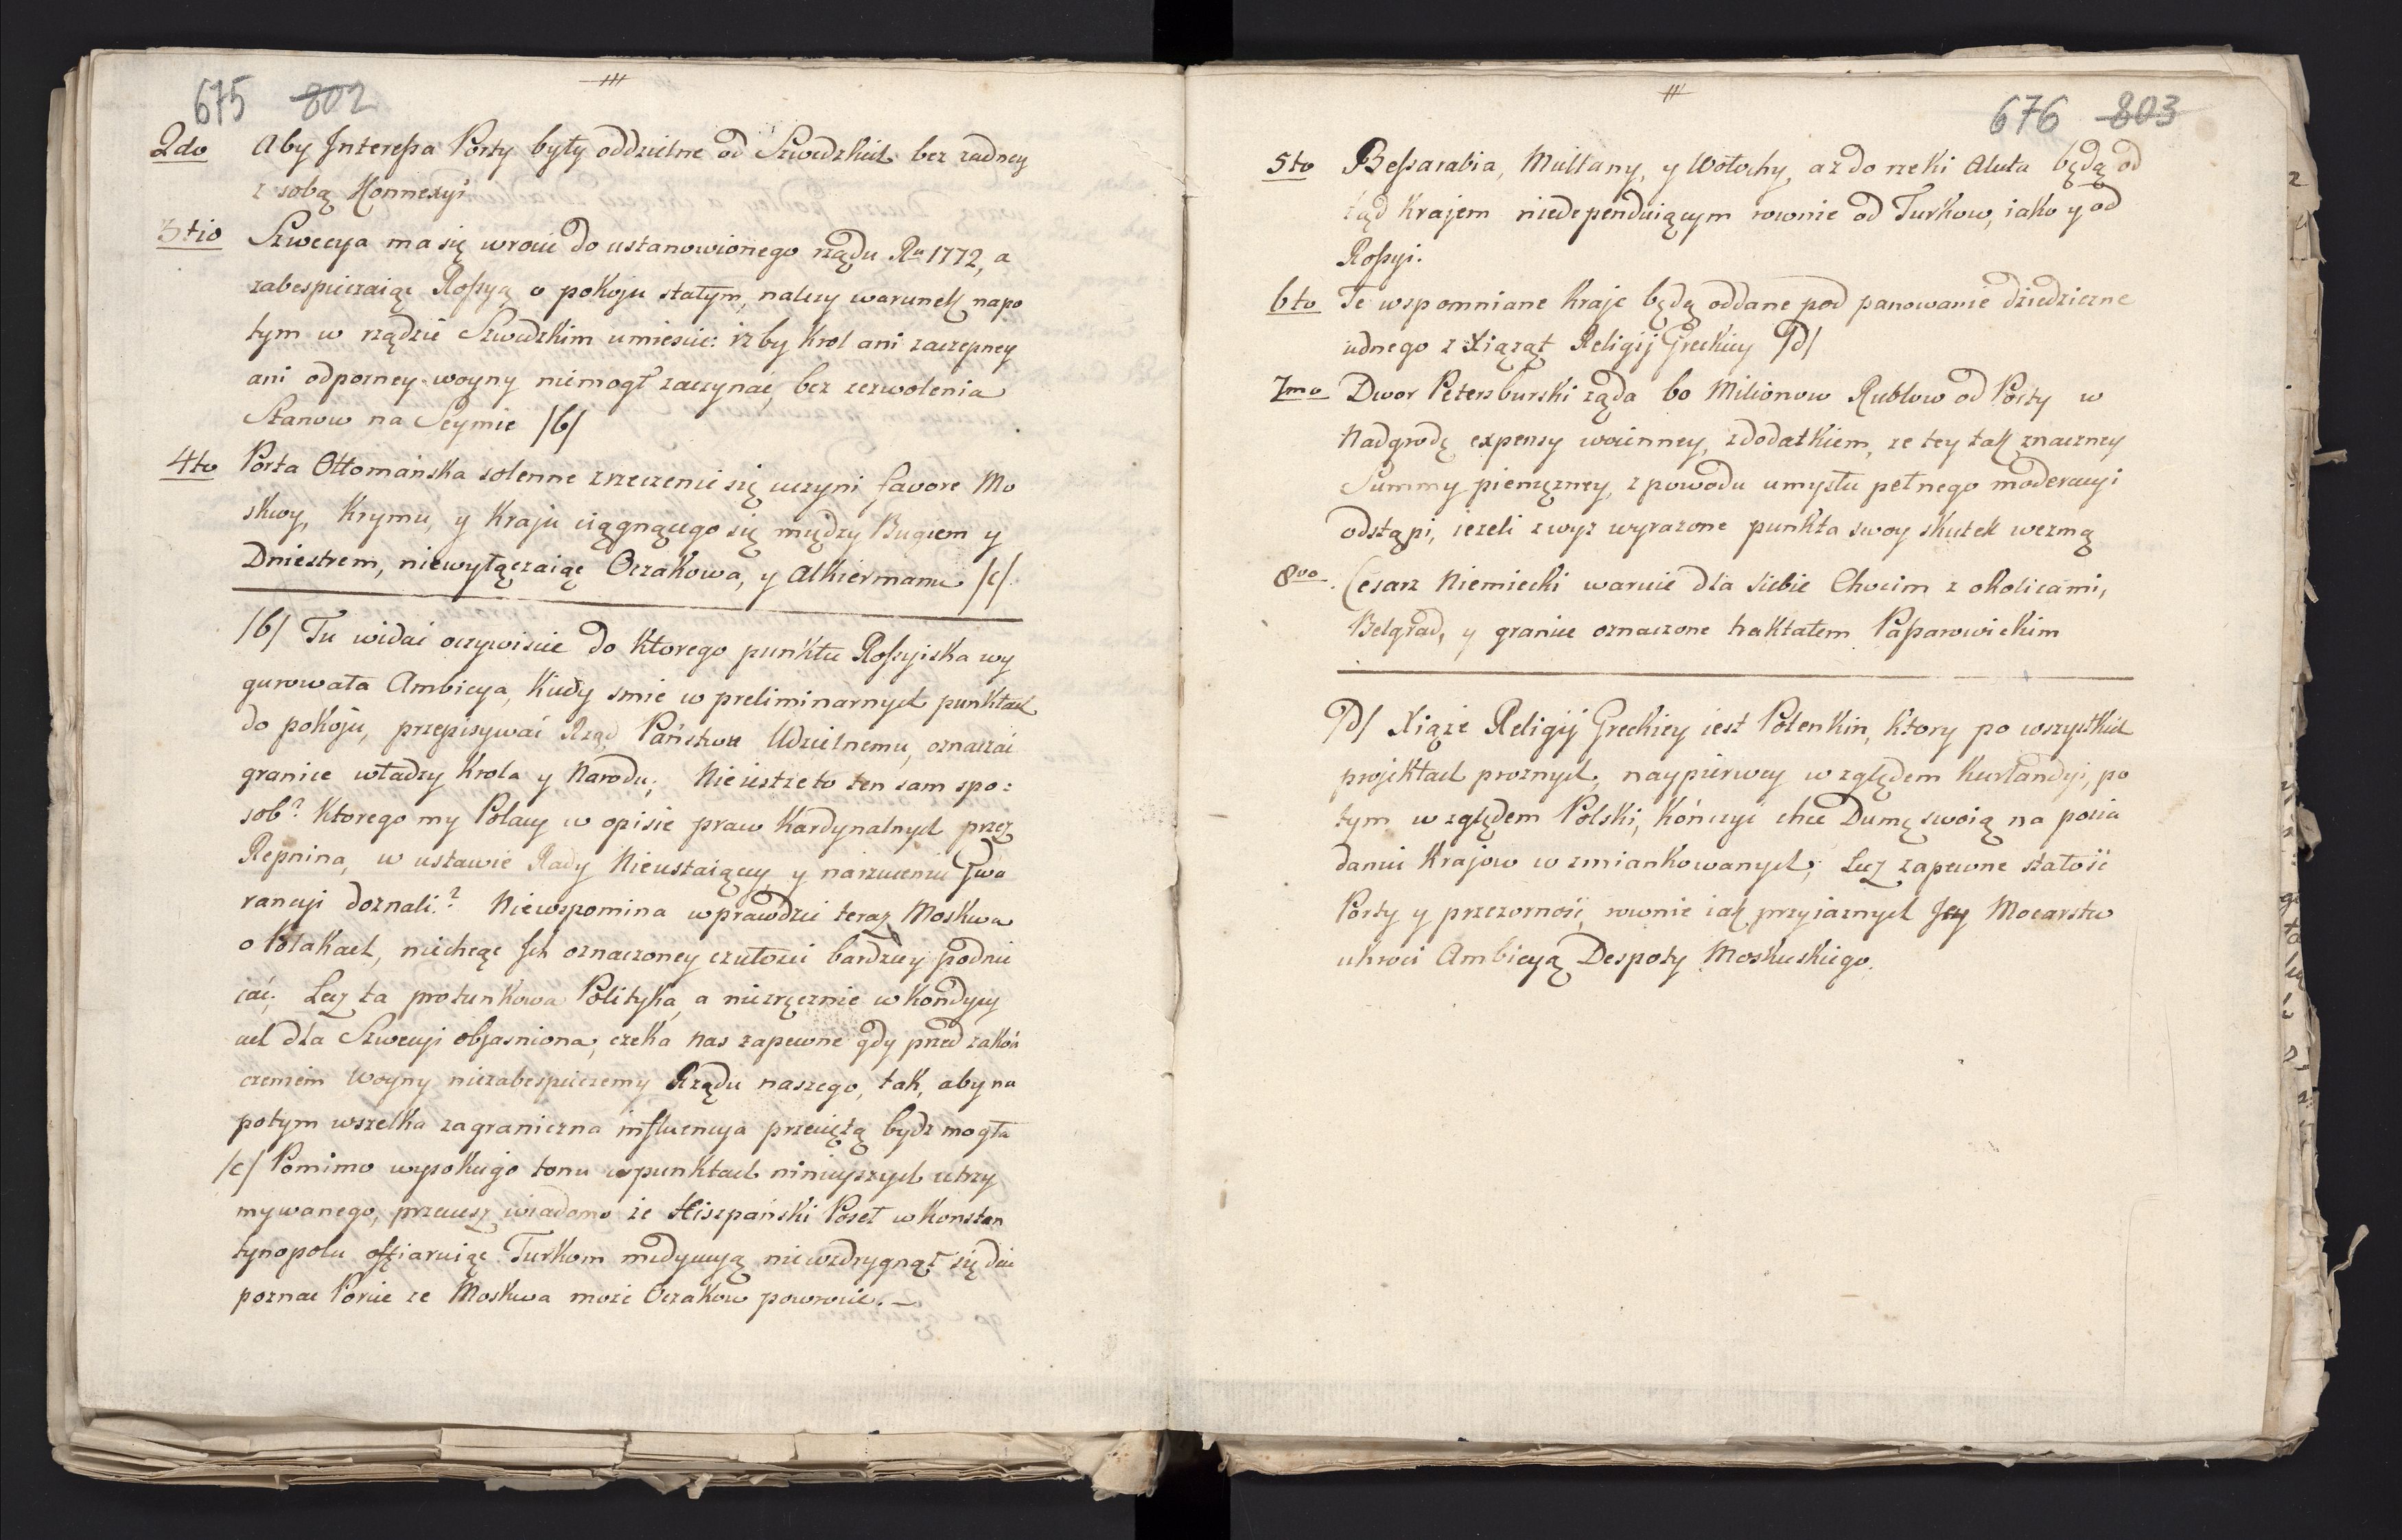 675 802
2do Aby Interessa Porty były oddzielne od Szwedzkich bez żadney
z sobą Konnexyi
3tio Szwecya ma się wrocić do ustanowionego rządu Ru 1772, a
zabespieczaiąc Rossyą o pokoju stałym, należy warunek napo
tym w rządzie Szwedzkim umiescić: iżby Krol ani zaczepney
ani odporney woyny niemogł zaczynać, bez zezwolenia
Stanow na Seymie /b/
4to Porta Ottomańska solenne zrzeczenie się uczyni favore Mo
skwy, Krymu, y Kraju ciągnącego się między Bugiem y
Dniestrem, niewyłączaiąc Oczakowa, y Alkiermanu /c/.
/b/ Tu widać oczywiscie do ktorego punktu Rossyiska wy
gurowała Ambicya, kiedy smie w preliminarnych punktach
do pokoju, przepisywać Rząd Państwu Udzielnemu, oznaczać
granice władzy Krola y Narodu; Nieiestże to ten sam spo:
sob? ktorego my Polacy w opisie praw Kardynalnych przez
Repnina, w ustawie Rady Nieustaiącey, y narzuceniu Gwa
rancyi doznali.? Niewspomina wprawdzie teraz Moskwa
o Polakach, niechcąc Ich oznaczoney czułosci bardziey podnie
cać; Lecz ta protunkowa Polityka, a niezręcznie w kondycy
ach dla Szwecyi objasniona, czeka nas zapewne gdy przed zakoń
czeniem Woyny niezabespieczemy Rządu naszego, tak, aby na
potym wszelka zagraniczna influencya przeciętą bydz mogła
/c/ Pomimo wysokiego tonu w punktach ninieyszych utrzy
mywanego, przeciesz wiadomo że Hiszpański Poseł w Konstan
tynopolu offiaruiąc Turkom medyacyą niewzdrygnął się dać
poznać Porcie że Moskwa może Oczakow powrocić.
676 803
5to Bessarabia, Multany, y Wołochy, aż do rzeki Aluta będą od
tąd Krajem niedependuiącym rownie od Turkow, iako y od
Rossyi.
6to Te wspomniane Kraje będą oddane pod panowanie dziedziczne
iednego z Xiążąt Religij Greckiey /d/
7mo Dwor Petersburski żąda 60 Milionow Rublow od Porty w
Nadgrodę expensy woienney, z dodatkiem, że tey tak znaczney
Summy pieniężney, z powodu umysłu pełnego moderacyi
odstąpi, ieżeli zwyż wyrażone punkta swoy skutek wezmą
8vo. Cesarz Niemiecki waruie dla siebie Chocim z okolicami,
Belgrad, y granice oznaczone traktatem Passarowickim
/d/ Xiąże Religij Greckiey iest Potenkin, ktory po wszystkich
projektach prożnych, naypierwey względem Kurlandyi, po
tym względem Polski, kończyć chce Dumę swoią na posia
daniu Krajow wzmiankowanych; Lecz zapewne stałość
Porty y przezorność, rownie iak przyiaznych Jey Mocarstw
ukroci Ambicyą Despoty Moskuskiego.